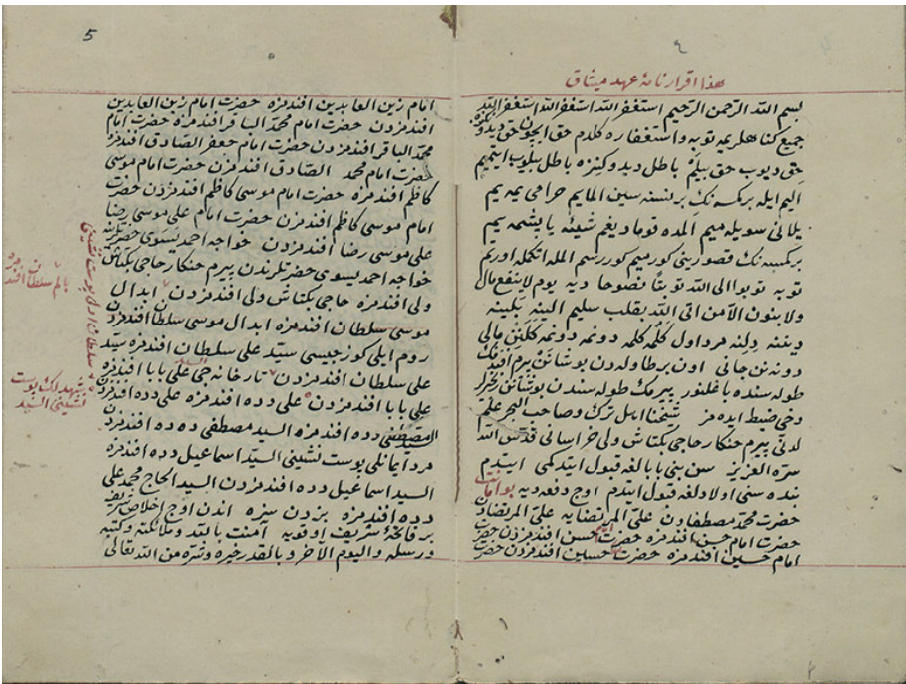 ٤
هذا اقرارنامهٔ عهد ميثاق
بسم الله الرحمن الرحيم استغفر الله استغفر الله استغفر الله
جميع كناهلريمه توبه و استغفاره كلدم حق ايچون حق ديدوكڭزه
حق ديوب حق بيلم باطل ديدوكڭزه باطل بيلوب ايتميم
اليم ايله بر كمسه نڭ بر نسنه سين المايم حرامى يمه يم
يلانى سويله ميم المده قوماديغم شيئه ياپشمه يم
بر كمسه نڭ قصورينى كورميم كوررسم المله اتكمله اورتم
توبه توبوا الى الله توبتا نصوحا ديه يوم لا ينفع مال
ولا بنون الا من اتى الله بقلب سليم الينه بلينه
ديننه دلنه مرد اول كلمه كلمه دونمه دونمه كلنڭ مالى
دونه نڭ جانى اون برطاوله دن بوشانن پيرم افندمڭ
طوله سنده باغلنور پيرمڭ طوله سندن بوشانن
دخى ضبط ايده مز شيخنا اهل ترك وصاحب البحر علم
لدنى پيرم حنكار حاجى بكتاش ولى خراسانى قدس الله
سره العزيز سن بنى بابالغه قبول ايتدكمى ايتدم
بنده سنى اولادلغه قبول ايتدم اوچ دفعه ديه بو امانت
حضرت محمد مصطفادن على المرتضايه على المرتضادن
حضرت امام حسن افندمزه حضرت امام حسن افندمزدن حضرت
امام حسين افندمزه حضرت امام حسين افندمزدن حضرت
5
امام زين العابدين افندمزه حضرت امام زين العابدين
افندمزدن حضرت امام محمد الباقر افندمزه حضرت امام
محمد الباقر افندمزدن حضرت امام جعفر الصادق افندمزه
حضرت امام محمد الصادق افندمزن حضرت امام موسى
كاظم افندمزه حضرت امام موسى كاظم افندمزدن حضرت
امام موسى كاظم افندمزن حضرت امام على موسى رضا
على موسى رضا افندمزدن خواجه احمد يسوى حضرتلرينه
خواجه احمد يسوى حضرتلرندن پيرم حنكار حاجى بكتاش
ولى افندمزه حاجى بكتاش ولى افندمزدن ابدال
موسى سلطان افندمزه ابدال موسى سلطان افندمزدن
روم ايلى كوزجيسى سيد على سلطان افندمزه سيد
على سلطان افندمزدن تارخانه جى على بابا افندمزه
على بابا افندمزدن على دده افندمزه على دده افندمزدن
السيد مصطفى دده افندمزه السيد مصطفى ده ده افندمزدن
مردانلى پوست نشينى السيد اسماعيل دده افندمزه
السيد اسماعيل دده افندمزدن السيد الحاج محمد على
دده افندمزه بزدن سزه اندن اوچ اخلاص شريف
بر فاتحهٔ شريف اوقويه آمنت بالله وملائكته وكتبه
ورسله واليوم الآخر وبالقدر خيره وشره من الله تعالى
بالم سلطان افندمزه
شهيدلك پوست
نشينى السيد